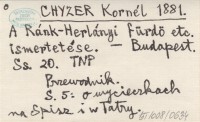 CHYZER Kornél 1881.
A Ránk-Herlányi fürdő etc.
ismertetése. — Budapest.
Ss. 20. TNP
Przewodnik.
S. 5: o wycieczkach
na Spisz i w Tatry.
GT/008/0694